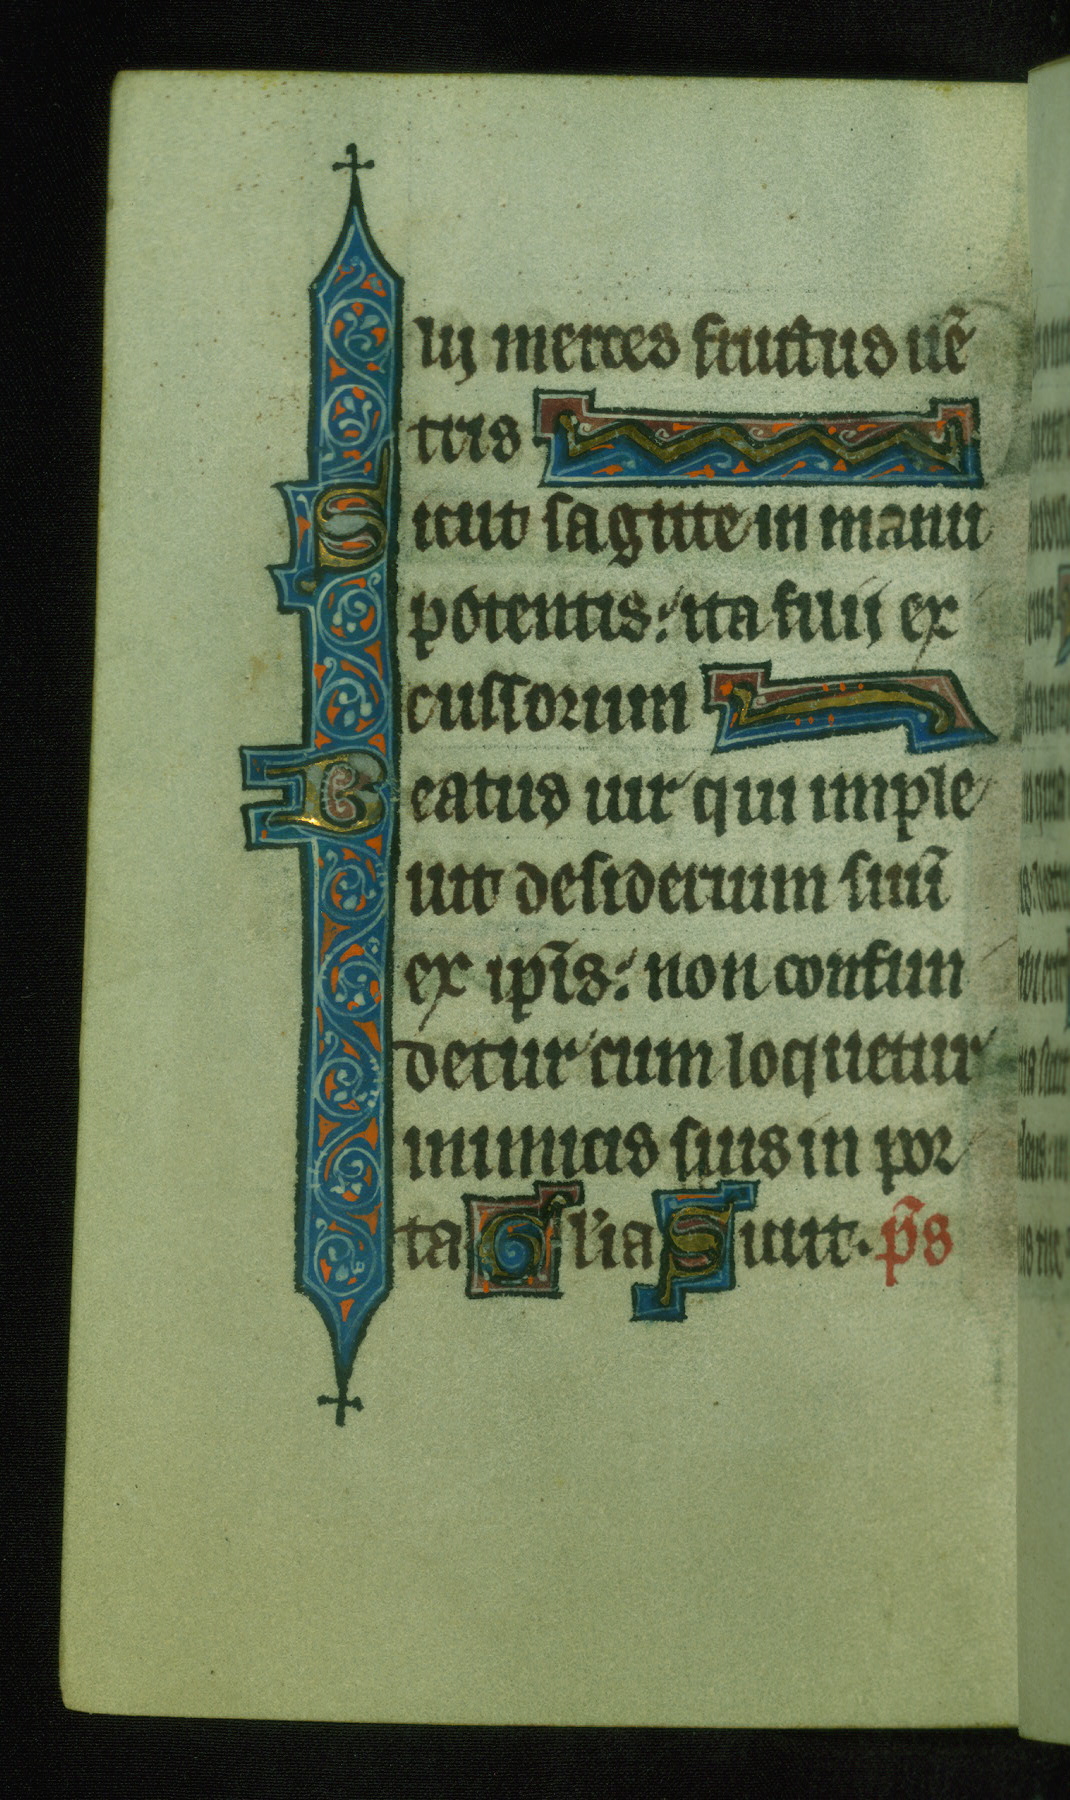 lij merces fructus uē
tris
Sicut sagitte in manu
potentis: ita filij ex
cussorum
Beatus uir qui imple
uit desiderium suū
ex ip̄is: non confun
detur cum loquetur
inimicis suis in por
ta Gl'ia Sicut. p̄s